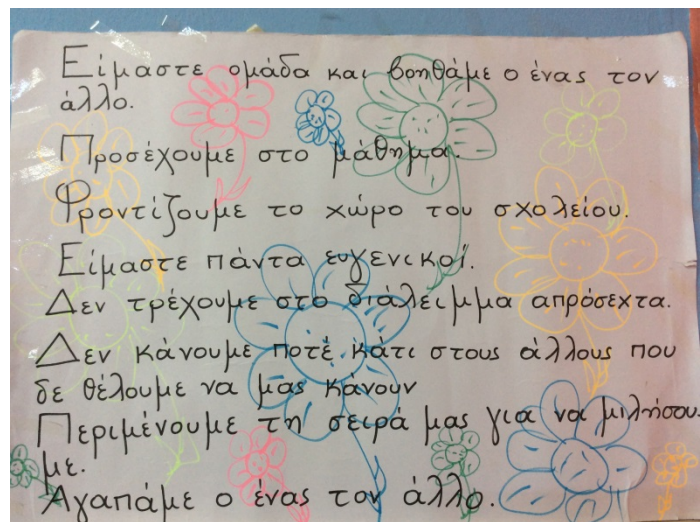 Είμαστε ομάδα και βοηθάμε ο ένας τον
άλλο.
Προσέχουμε στο μάθημα.
Φροντίζουμε το χώρο του σχολείου.
Είμαστε πάντα ευγενικοί.
Δεν τρέχουμε στο διάλειμμα απρόσεχτα.
Δεν κάνουμε ποτέ κάτι στους άλλους που
δε θέλουμε να μας κάνουν
Περιμένουμε τη σειρά μας για να μιλήσου-
με.
Αγαπάμε ο ένας τον άλλο.